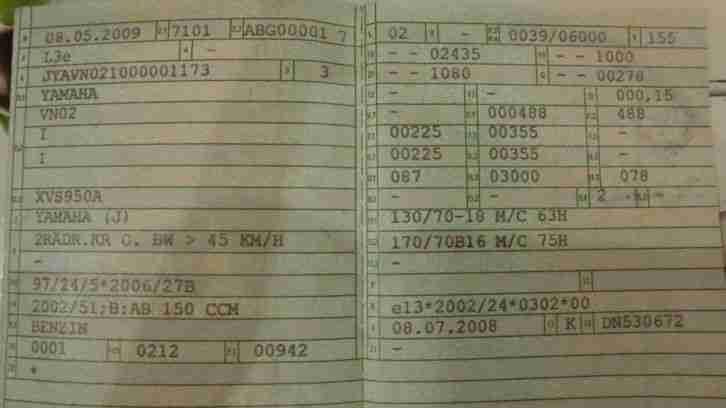 08.05.2009 7101 ABG00001 7
L3e -
JYAVN021000001173 3
YAMAHA
VN02
I
1
XVS950A
YAMAHA (J)
2RÄDR.KR O. BW > 45 KM/H
-
97/24/5*2006/27B
2002/51;B:AB 150 CCM
BENZIN
0001 0212 00942
*
02 - 0039/06000 155
- - 02435 - - 1000
- - 1080 - - 00278
- - 000,15
- 000488 488
00225 00355 -
00225 00355 -
087 03000 078
- - 2 -
130/70-18 M/C 63H
170/70B16 M/C 75H
-
e13*2002/24*0302*00
08.07.2008 K DN530672
-